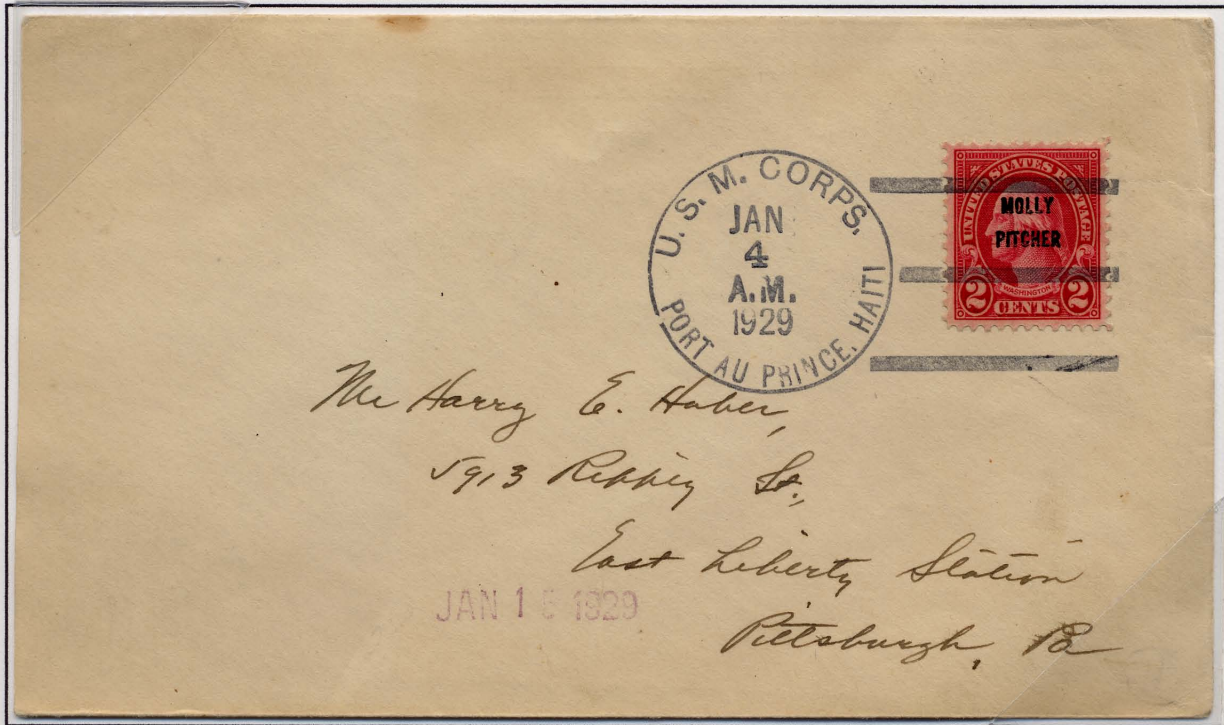 U. S. M. CORPS.
JAN
4
A.M.
1929
PORT AU PRINCE, HAITI
UNITED STATES POSTAGE
MOLLY
PITCHER
WASHINGTON
2 CENTS 2
Mr Harry E. Huber,
5913 Rippey St.,
East Liberty Station
Pittsburgh, Pa
JAN 1 1929